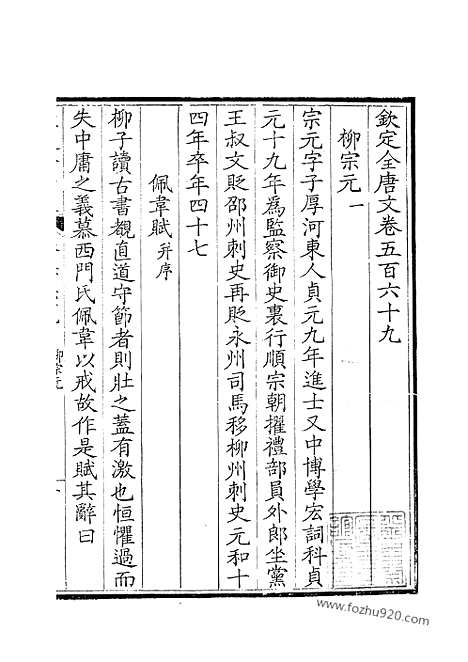 欽定全唐文卷五百六十九
柳宗元一
宗元字子厚河東人貞元九年進士又中博學宏詞科貞
元十九年為監察御史裏行順宗朝擢禮部員外郎坐黨
王叔文貶邵州刺史再貶永州司馬移柳州刺史元和十
四年卒年四十七
佩韋賦并序
柳子讀古書覩直道守節者則壯之蓋有激也恒懼過而
失中庸之義慕西門氏佩韋以戒故作是賦其辭曰
柳宗元
一
www.fozhu920.com